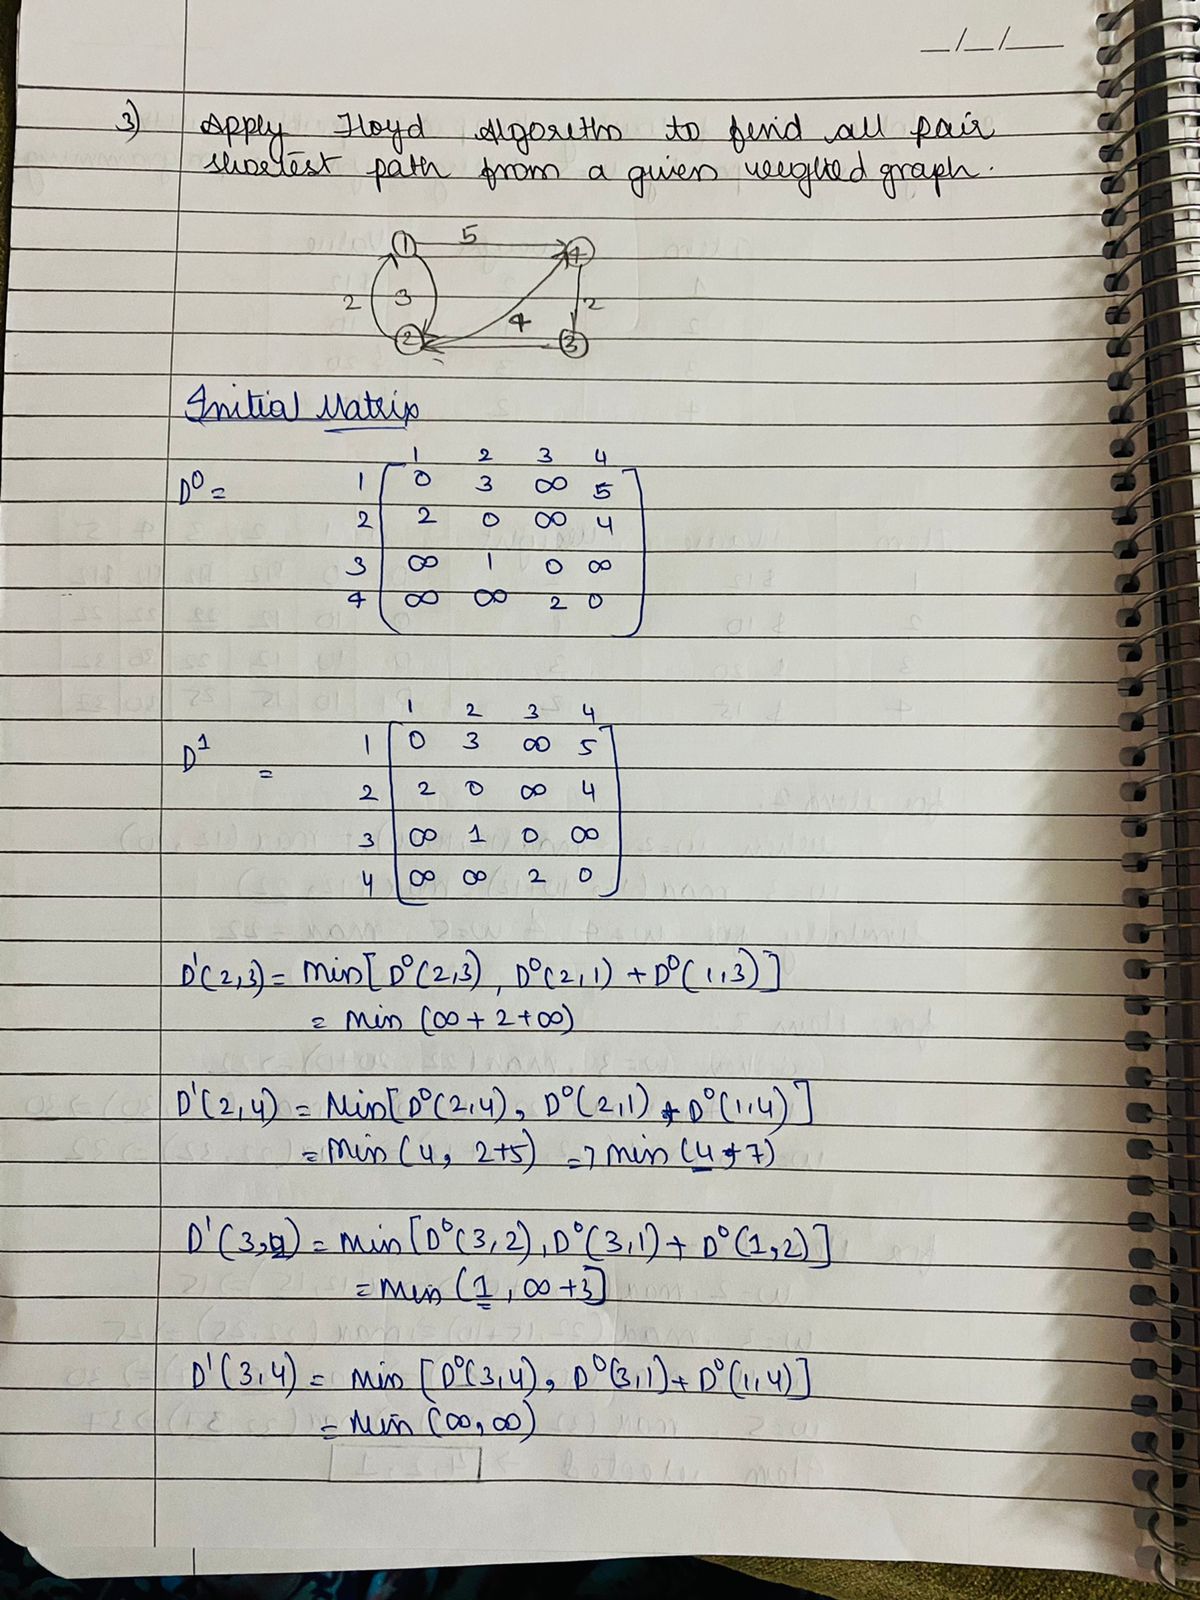 _/_/__
3) Apply Floyd Algorethm to find all pair
shortest path from a given weighted graph.
1 5 4
2 3 2
4
2 3
Initial Matrix
1 2 3 4
D⁰ = 1 0 3 ∞ 5
2 2 0 ∞ 4
3 ∞ 1 0 ∞
4 ∞ ∞ 2 0
1 2 3 4
D¹ = 1 0 3 ∞ 5
2 2 0 ∞ 4
3 ∞ 1 0 ∞
4 ∞ ∞ 2 0
D¹(2,3) = Min[D⁰(2,3), D⁰(2,1) + D⁰(1,3)]
= Min (∞ + 2 + ∞)
D¹(2,4) = Min[D⁰(2,4), D⁰(2,1) + D⁰(1,4)]
= Min (4, 2+5) => min (4, 7)
D¹(3,2) = Min [D⁰(3,2), D⁰(3,1) + D⁰(1,2)]
= Min (1, ∞ + 3]
D¹(3,4) = Min [D⁰(3,4), D⁰(3,1) + D⁰(1,4)]
= Min (∞, ∞)